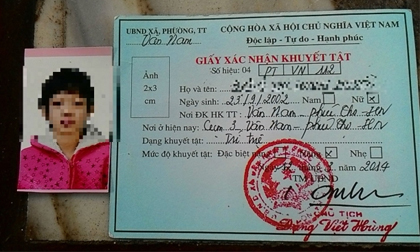 UBND XÃ, PHƯỜNG, TT
Vân Nam
CỘNG HÒA XÃ HỘI CHỦ NGHĨA VIỆT NAM
Độc lập - Tự do - Hanh phúc
GIẤY XÁC NHẬN KHUYẾT TẬT
Số hiệu: 04 PT VN 112
Ảnh
2x3
cm
Họ và tên:
Ngày sinh: 23/9/2002 Nam Nữ
Nơi ĐK HK TT: Vân Nam - Phúc Thọ - HN
Nơi ở hiện nay: Cụm 3 Vân Nam - Phúc Thọ - HN
Dạng khuyết tật: Trí tuệ
Mức độ khuyết tật: Đặc biệt nặng Nặng Nhẹ
Ngày 2014
TM UBND
CHỦ TỊCH
Đặng Viết Hùng